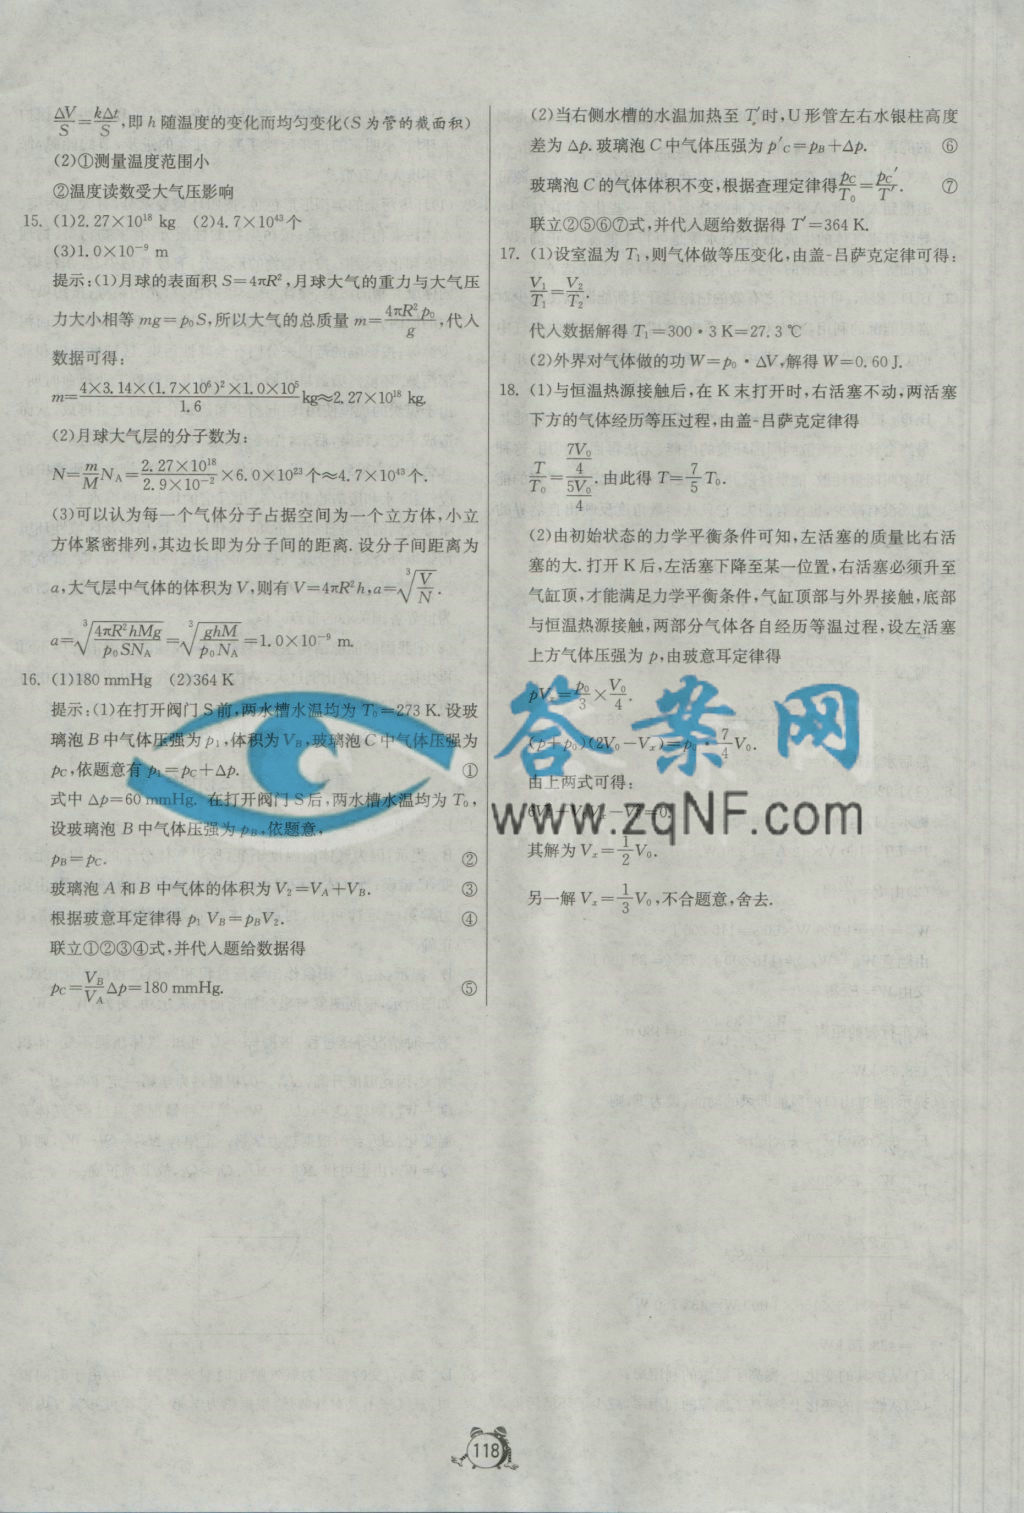 ΔV/S=kΔt/S,即 h 随温度的变化而均匀变化(S 为管的截面积)
(2)①测量温度范围小
②温度读数受大气压影响
15. (1)2.27×10¹⁸ kg (2)4.7×10⁴³个
(3)1.0×10⁻⁹ m
提示:(1)月球的表面积 S=4πR²,月球大气的重力与大气压
力大小相等 mg=p₀S,所以大气的总质量 m=4πR²p₀/g,代入
数据可得:
m=4×3.14×(1.7×10⁶)²×1.0×10⁵/1.6 kg≈2.27×10¹⁸ kg.
(2)月球大气层的分子数为:
N=m/M N_A=2.27×10¹⁸/2.9×10⁻²×6.0×10²³个≈4.7×10⁴³个.
(3)可以认为每一个气体分子占据空间为一个立方体,小立
方体紧密排列,其边长即为分子间的距离.设分子间距离为
a,大气层中气体的体积为 V,则有 V=4πR²h,a=∛(V/N).
a=∛(4πR²hMg/p₀SN_A)=∛(ghM/p₀N_A)=1.0×10⁻⁹ m.
16. (1)180 mmHg (2)364 K
提示:(1)在打开阀门 S 前,两水槽水温均为 T₀=273 K.设玻
璃泡 B 中气体压强为 p₁,体积为 V_B,玻璃泡 C 中气体压强为
p_C,依题意有 p₁=p_C+Δp. ①
式中 Δp=60 mmHg. 在打开阀门 S 后,两水槽水温均为 T₀,
设玻璃泡 B 中气体压强为 p_B,依题意,
p_B=p_C. ②
玻璃泡 A 和 B 中气体的体积为 V₂=V_A+V_B. ③
根据玻意耳定律得 p₁V_B=p_BV₂. ④
联立①②③④式,并代入题给数据得
p_C=V_B/V_A Δp=180 mmHg. ⑤
(2)当右侧水槽的水温加热至 T′时,U 形管左右水银柱高度
差为 Δp.玻璃泡 C 中气体压强为 p′_C=p_B+Δp. ⑥
玻璃泡 C 的气体体积不变,根据查理定律得p_C/T₀=p_C′/T′. ⑦
联立②⑤⑥⑦式,并代入题给数据得 T′=364 K.
17. (1)设室温为 T₁,则气体做等压变化,由盖-吕萨克定律可得:
V₁/T₁=V₂/T₂.
代入数据解得 T₁=300·3 K=27.3 ℃
(2)外界对气体做的功 W=p₀·ΔV,解得 W=0.60 J.
18. (1)与恒温热源接触后,在 K 末打开时,右活塞不动,两活塞
下方的气体经历等压过程,由盖-吕萨克定律得
T/T₀=(7V₀/4)/(5V₀/4).由此得 T=7/5 T₀.
(2)由初始状态的力学平衡条件可知,左活塞的质量比右活
塞的大.打开 K 后,左活塞下降至某一位置,右活塞必须升至
气缸顶,才能满足力学平衡条件,气缸顶部与外界接触,底部
与恒温热源接触,两部分气体各自经历等温过程,设左活塞
上方气体压强为 p,由玻意耳定律得
pVₓ=p₀/3×V₀/4.
(p+p₀)(2V₀-Vₓ)=p₀·7/4 V₀.
由上两式可得:
其解为 Vₓ=1/2 V₀.
另一解 Vₓ=1/3 V₀,不合题意,舍去.
答案网
www.zqNF.com
118